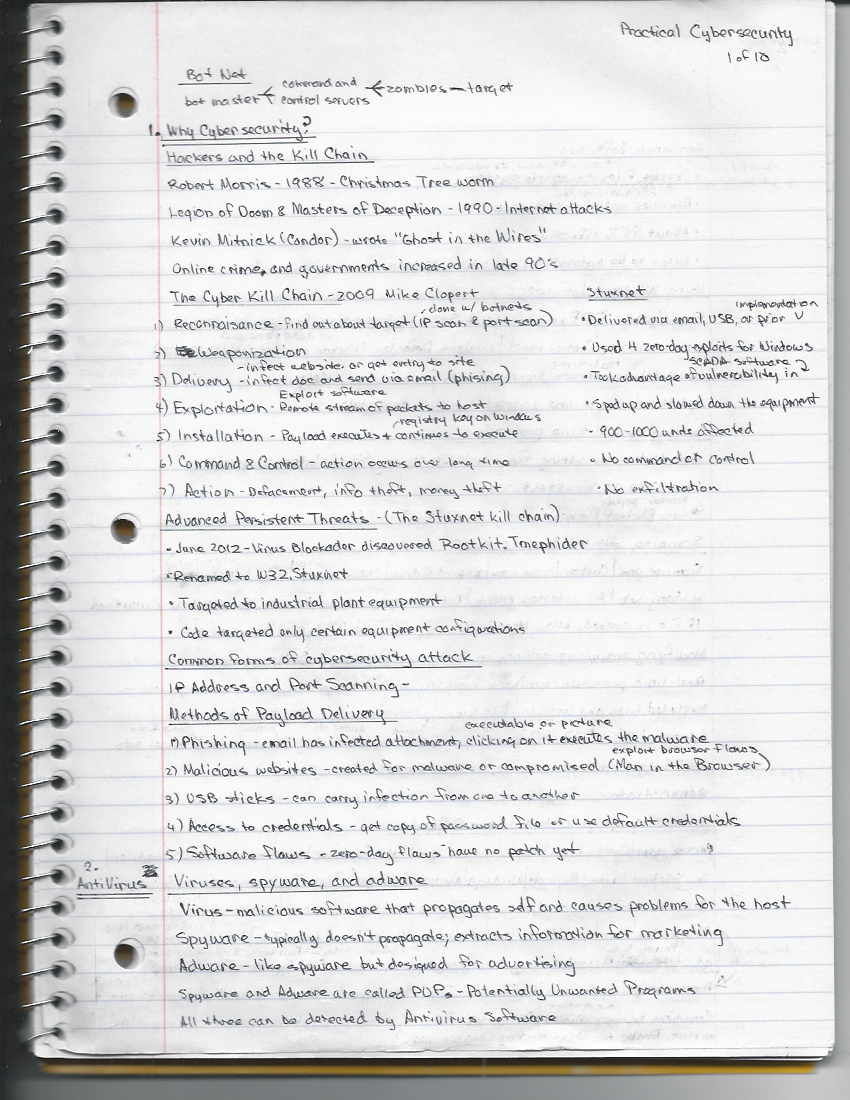 Practical Cybersecurity
1 of 10
Bot Net
bot master < command and control servers < zombies - target
1. Why Cybersecurity?
Hackers and the Kill Chain
Robert Morris - 1988 - Christmas Tree worm
Legion of Doom & Masters of Deception - 1990 - Internet attacks
Kevin Mitnick (Condor) - wrote "Ghost in the Wires"
Online crime, and governments increased in late 90's
The Cyber Kill Chain - 2009 Mike Clopert
done w/ botnets
1) Reconnaisance - Find out about target (IP scan & port scan)
2) Weaponization
- infect website or get entry to site
3) Delivery - infect doc and send via email (phising)
Exploit software
4) Exploitation - Remote stream of packets to host
registry key on Windows
5) Installation - Payload executes & continues to execute
6) Command & Control - action occurs over long time
7) Action - Defacement, info theft, money theft
Stuxnet
implementation
• Delivered via email, USB, or prior
• Used 4 zero-day exploits for Windows
SCADA software
• Took advantage of vulnerability in
• Sped up and slowed down the equipment
• 900-1000 units affected
• No command or control
• No exfiltration
Advanced Persistent Threats - (The Stuxnet kill chain)
• June 2012 - Virus Blockader discovered Rootkit.Tmephider
• Renamed to W32.Stuxnet
• Targeted to industrial plant equipment
• Code targeted only certain equipment configurations
Common forms of cybersecurity attack
IP Address and Port Scanning -
Methods of Payload Delivery
executable or picture
1) Phishing - email has infected attachment, clicking on it executes the malware
exploit browser flaws
2) Malicious websites - created for malware or compromised (Man in the Browser)
3) USB sticks - can carry infection from one to another
4) Access to credentials - get copy of password file or use default credentials
5) Software flaws - zero-day flaws have no patch yet
2.
AntiVirus
Viruses, spyware, and adware
Virus - malicious software that propagates self and causes problems for the host
Spyware - typically doesn't propagate; extracts information for marketing
Adware - like spyware but designed for advertising
Spyware and Adware are called PUPs - Potentially Unwanted Programs
All three can be detected by Antivirus Software